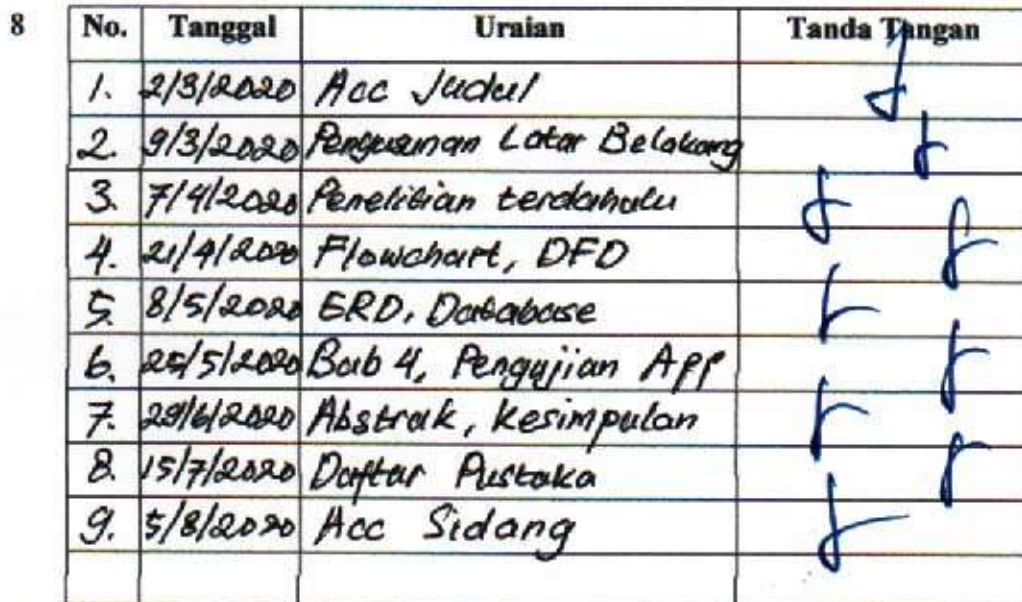 8
No. Tanggal Uraian Tanda Tangan
1. 2/3/2020 Acc Judul
2. 9/3/2020 Penyusunan Latar Belakang
3. 7/4/2020 Penelitian terdahulu
4. 21/4/2020 Flowchart, DFD
5. 8/5/2020 ERD, Database
6. 25/5/2020 Bab 4, Pengujian App
7. 29/6/2020 Abstrak, kesimpulan
8. 15/7/2020 Daftar Pustaka
9. 5/8/2020 Acc Sidang